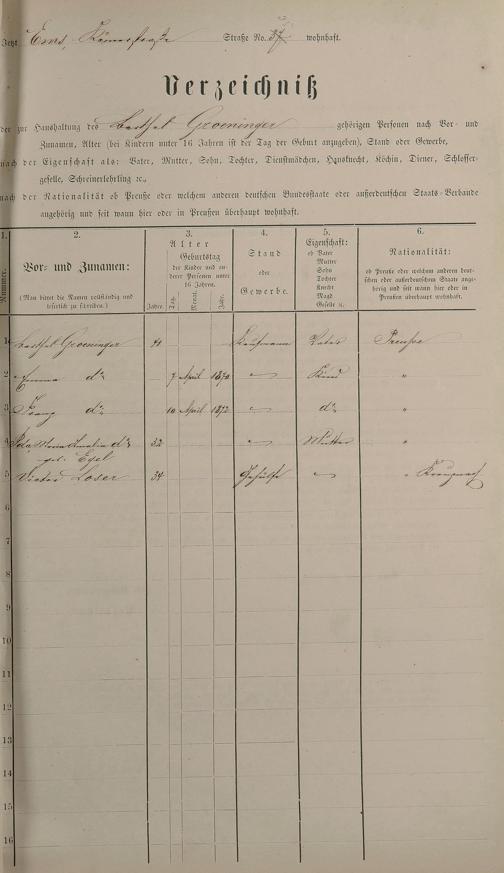 Jetzt Ems, Römerstraße Straße No. 37 wohnhaft.
Verzeichniß
der zur Haushaltung des Barthel Groeninger gehörigen Personen nach Vor- und
Zunamen, Alter (bei Kindern unter 16 Jahren ist der Tag der Geburt anzugeben), Stand oder Gewerbe,
nach der Eigenschaft als: Vater, Mutter, Sohn, Tochter, Dienstmädchen, Hausknecht, Köchin, Diener, Schlosser-
geselle, Schreinerlehrling ꝛc.,
nach der Nationalität ob Preuße oder welchem anderen deutschen Bundesstaate oder außerdeutschen Staats-Verbande
angehörig und seit wann hier oder in Preußen überhaupt wohnhaft.
1. 2. 3. 4. 5. 6.
Nummer.
Vor- und Zunamen:
(Man bittet die Namen vollständig und
leserlich zu schreiben.)
Alter
Geburtstag
der Kinder und an-
derer Personen unter
16 Jahren.
Jahre. Tag. Monat. Jahr.
Stand
oder
Gewerbe.
Eigenschaft:
ob Vater
Mutter
Sohn
Tochter
Knecht
Magd
Geselle ꝛc.
Nationalität:
ob Preuße oder welchem anderen deut-
schen oder außerdeutschen Staate ange-
hörig und seit wann hier oder in
Preußen überhaupt wohnhaft.
1 Barthel Groeninger 41 Kaufmann Vater Preuße
2 Emma do 7 April 1870 — Kind "
3 Franz do 10 April 1872 — do "
4 Ida Maria Amalia do 32 — Mutter "
geb. Egel
5 Victor Loser 34 Gehülfe — " Kreuznach
6
7
8
9
10
11
12
13
14
15
16